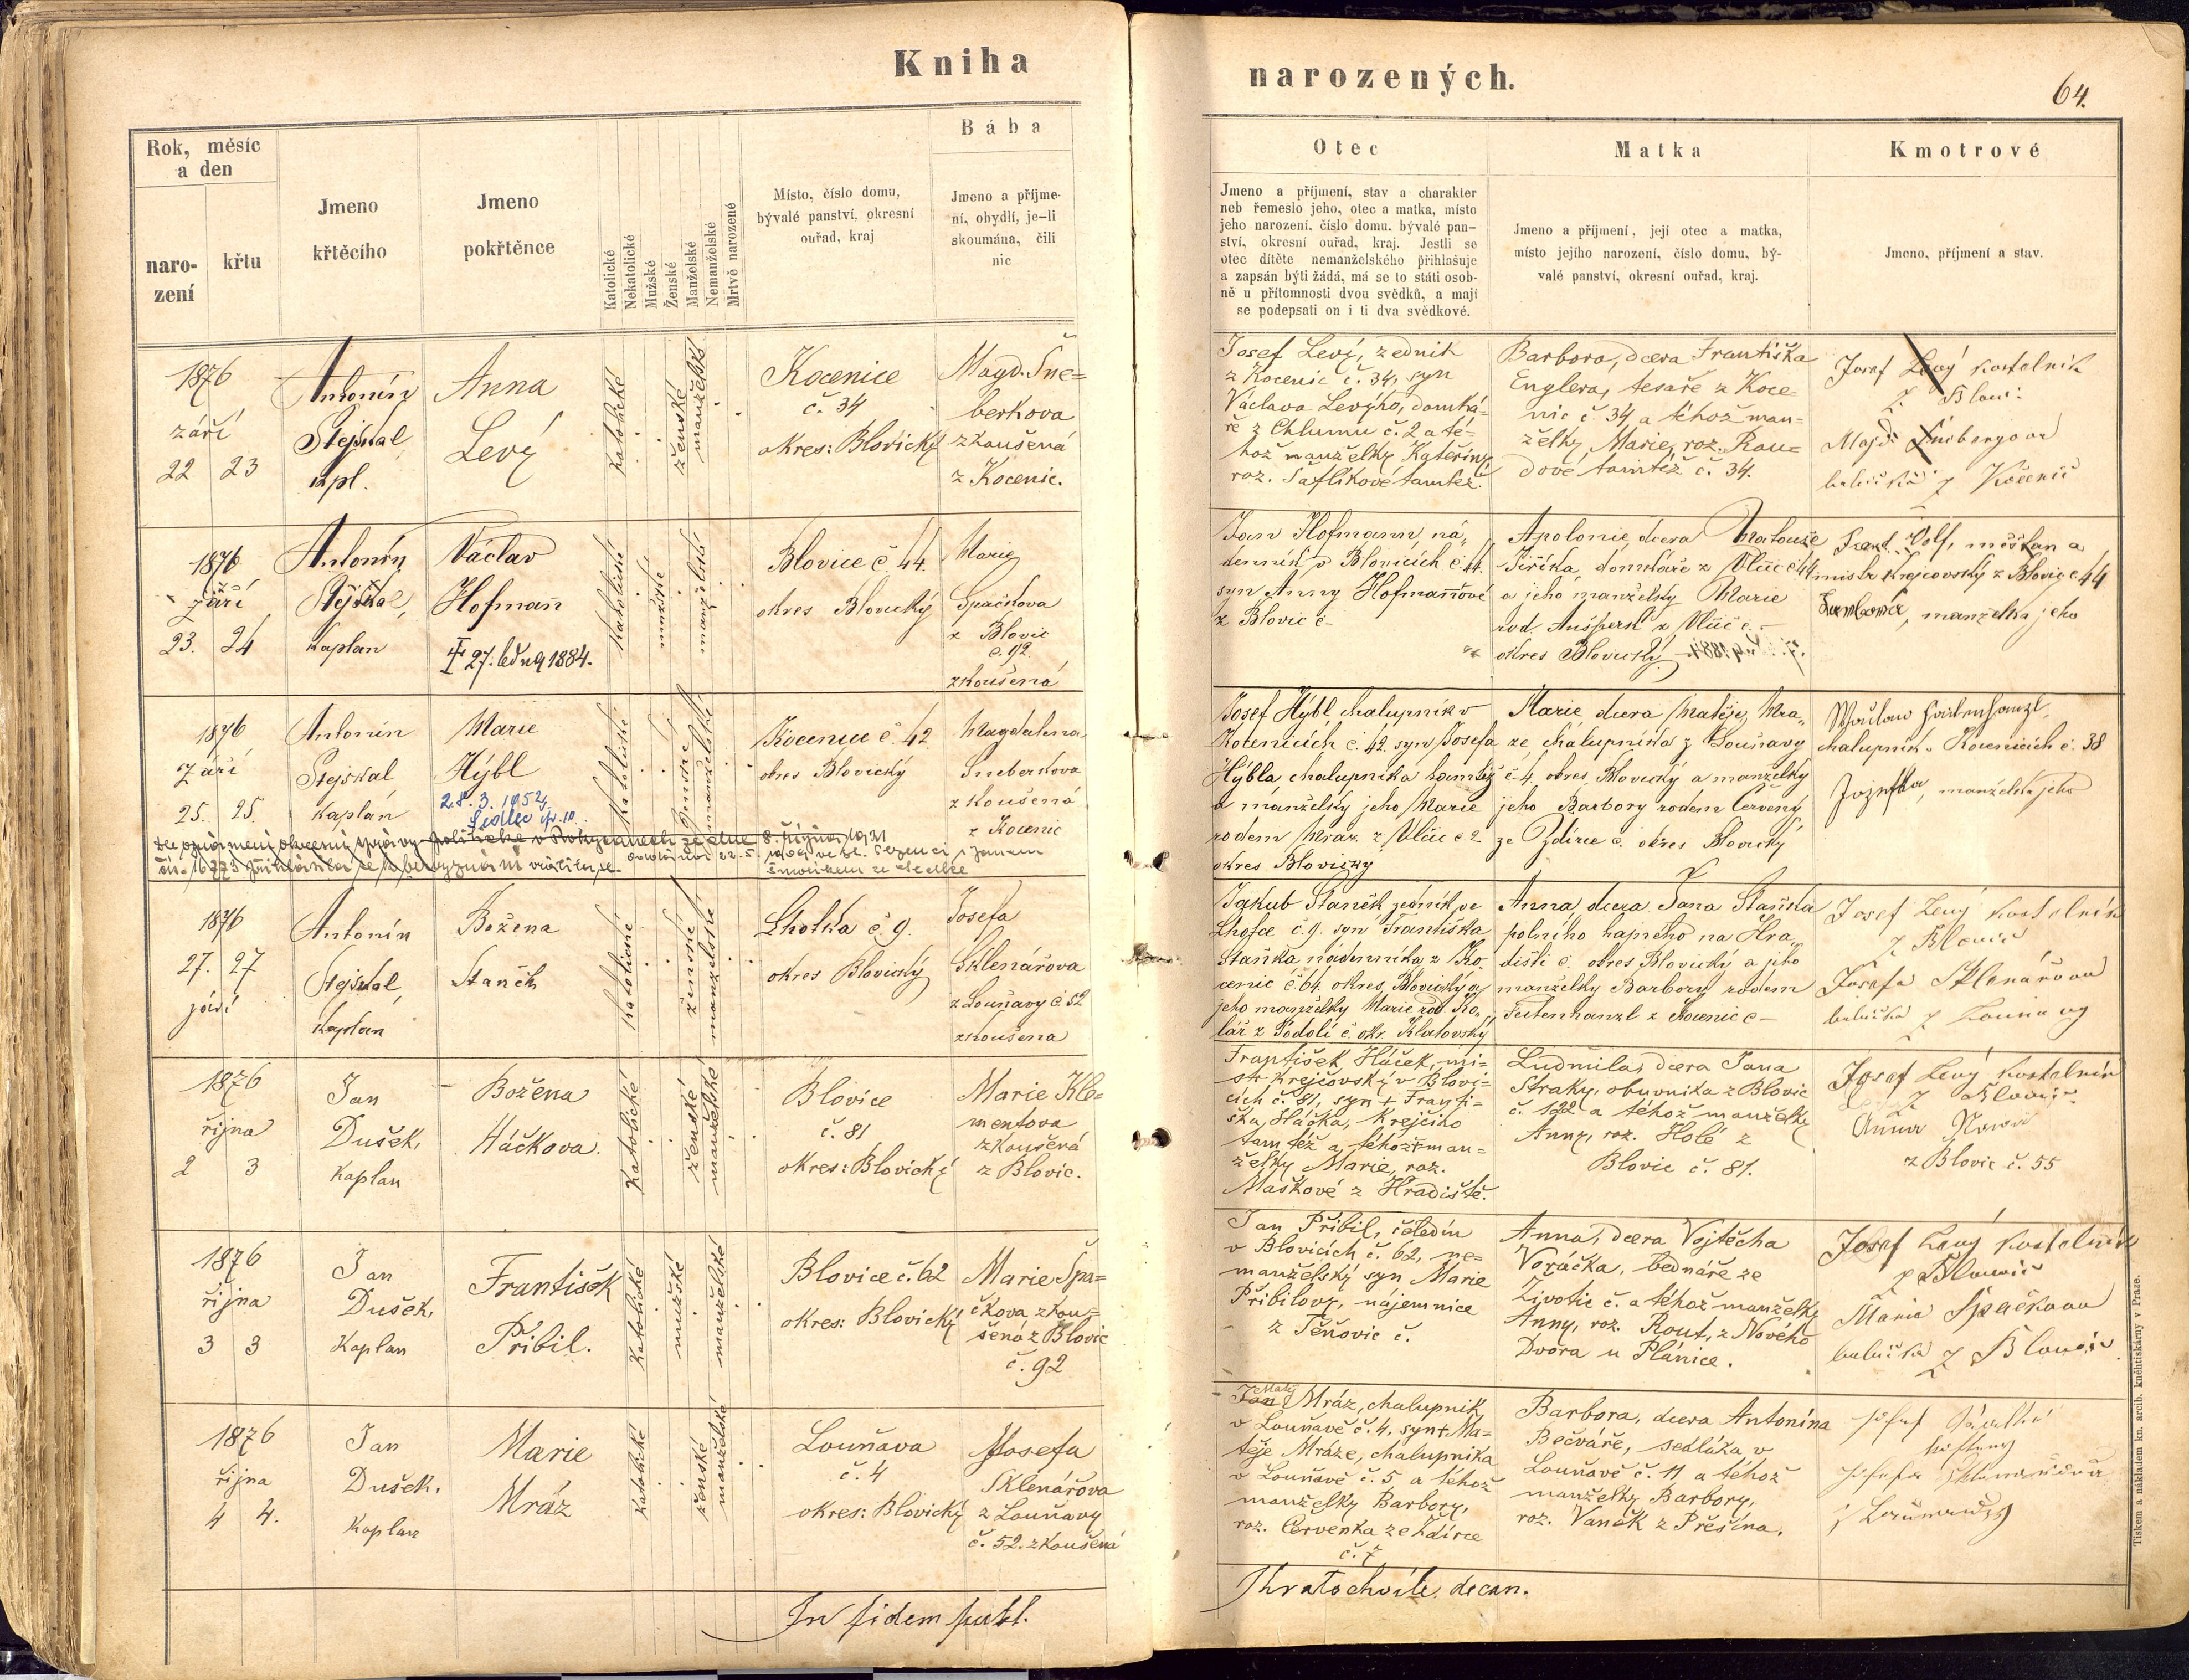 Kniha
narozených.
64.
Rok, měsíc
a den
naro-
zení
křtu
Jmeno
křtěcího
Jmeno
pokřtěnce
Katolické
Nekatolické
Mužské
Ženské
Manželské
Nemanželské
Mrtvě narozené
Místo, číslo domu,
bývalé panství, okresní
ouřad, kraj
Bába
Jmeno a příjme-
ní, obydlí, je-li
skoumána, čili
nic
Otec
Jmeno a příjmení, stav a charakter
neb řemeslo jeho, otec a matka, místo
jeho narození, číslo domu, bývalé pan-
ství, okresní ouřad, kraj. Jestli se
otec dítěte nemanželského přihlašuje
a zapsán býti žádá, má se to státi osob-
ně u přítomnosti dvou svědků, a mají
se podepsati on i ti dva svědkové.
Matka
Jmeno a příjmení, její otec a matka,
místo jejího narození, číslo domu, bý-
valé panství, okresní ouřad, kraj.
Kmotrové
Jmeno, příjmení a stav.
1876
září
22 23
Antonín
Stejskal
kpl.
Anna
Levý
katolické
ženské
manželské
Kocenice
č. 34
okres: Blovický
Magd. Šne=
berkova
zkoušená
z Kocenic.
Josef Leví, zedník
z Kocenic č. 34, syn
Václava Levýho, domká=
ře z Chlumu č. 2 a té=
hož manželky Kateřiny
roz. Šaflíkové tamtéž.
Barbora, dcera Františka
Englera, tesaře z Koce-
nic č. 34 a téhož man=
želky Marie, roz. Rau=
dové tamtéž č. 34.
Josef Levý kostelník
z Blovic
babička z Kocenic
1876
září
23. 24
Antonín
Stejskal,
kaplan
Václav
Hofmann
27. 1884.
katolické
mužské
manželské
Blovice č. 44.
okres Blovický
Marie
Spačkova
z Blovic
č. 92
zkoušená
Jan Hofmann, ná„
denník v Blovicích č. 44.
syn Anny Hofmannové
z Blovic č –
Apolonie, dcera Matouše
Jiříka, domkáře z Vlčic č 44
a jeho manželky Marie
rod. z Vlčic č. –
okres Blovický
Volf, měšťan a
mistr krejčovský z Blovic č 44
manželka jeho
1876
Září
25. 25.
Antonín
Stejskal
kaplan
Marie
Hýbl
28. 3. 1952
Sedlec čp. 10.
katolické
ženské
manželské
Kocenice č. 42
okres Blovický
Magdalena
Sneberkova
zkoušená
z Kocenic
Josef Hýbl, chalupník v
Kocenicích č. 42. syn Josefa
Hýbla, chalupníka tamtéž
a manželky jeho Marie
rodem Mraz z Vlčic č. 2
okres Blovický
Marie, dcera Matěje, Mra„
ze, chalupníka z Louňavy
č 4, okres Blovický a manželky
jeho Barbory rodem Červený
ze Zdírce č. okres Blovický
chalupník v Kocenicích č. 38
Josefka, manželka jeho
8. října 1921
1876
27. 27
září
Antonín
Stejskal,
kaplan
Božena
Staněk
katolické
ženské
manželské
Lhotka č. 9.
okres Blovický
Josefa
Sklenářova
z Louňavy č 52
zkoušená
Jakub Staněk, zedník ve
Lhotce č. 9. syn Františka
Staňka nádenníka z Ko„
cenic č. 64. okres Blovický a
jeho manželky Marie rod. Ko„
lář z Podolí č. okr. Klatovský
Anna, dcera Jana Staňka
polního hajného na Hra„
dišti č. okres Blovický a jeho
manželky Barbory rodem
Feitenhanzl z Kocenic č –
Josef Levý kostelník
z Blovic
Josefa Sklenářova
babička z
1876
října
2 3
Jan
Dušek,
kaplan
Božena
Háčkova.
katolické
ženské
manželské
Blovice
č. 81
okres: Blovický
Marie Kle=
mentova
zkoušená
z Blovic.
František Háček, mi=
str krejčovský v Blovi=
cích č. 81, syn + Franti=
ška Háčka, krejčího
tamtéž a téhož + man=
želky Marie, roz.
Maškové z Hradiště.
Ludmila, dcera Jana
Straky, obuvníka z Blovic
č. 122 a téhož manželky
Anny, roz. Holé z
Blovic č. 81.
Josef Levý kostelník
z Blovic.
Anna
z Blovic č. 55
1876
října
3 3
Jan
Dušek,
kaplan
František
Přibil.
katolické
mužské
manželské
Blovice č. 62
okres: Blovický
Marie Špa=
čkova, zkou=
šená z Blovic
č. 92
Jan Přibil, čeledín
v Blovicích č. 62, ne=
manželský syn Marie
Přibilovy, nájemnice
z Těňovic č.
Anna, dcera Vojtěcha
Voráčka, bednáře ze
Životic č. a téhož manželky
Anny, roz. Kout, z Nového
Dvora u Plánice.
Josef Levý kostelník
z Blovic
Marie Špačkova
babička z Blovic
1876
října
4 4.
Jan
Dušek,
kaplan
Marie
Mráz
katolické
ženské
manželské
Louňava
č. 4
okres: Blovický
Josefa
Sklenářova
z Louňavy
č. 52. zkoušená
Matěj
Jan Mráz, chalupník
v Louňavě č. 4, syn + Ma=
těje Mráze, chalupníka
v Louňavě č. 5 a téhož
manželky Barbory,
roz. Červenka ze Ždírce
č. 7
Barbora, dcera Antonína
Bečváře, sedláka v
Louňavě č. 11 a téhož
manželky Barbory,
roz. Vaněk z Přešína.
In fidem publ.
Khratochvíle, decan.
Tiskem a nákladem kn. arcib. kněhtiskárny v Praze.